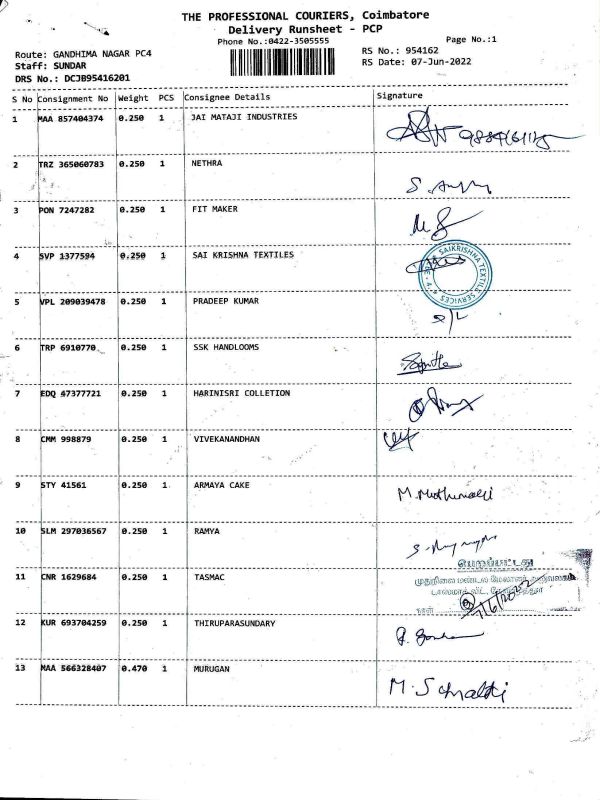 THE PROFESSIONAL COURIERS, Coimbatore
Delivery Runsheet - PCP
Phone No.:0422-3505555
Page No.:1
Route: GANDHIMA NAGAR PC4
RS No.: 954162
Staff: SUNDAR
RS Date: 07-Jun-2022
DRS No.: DCJB95416201
S No Consignment No Weight PCS Consignee Details Signature
1 MAA 857404374 0.250 1 JAI MATAJI INDUSTRIES
2 TRZ 365060783 0.250 1 NETHRA
3 PON 7247282 0.250 1 FIT MAKER
4 SVP 1377594 0.250 1 SAI KRISHNA TEXTILES
SAIKRISHNA TEXTILE SERVICES
5 VPL 209039478 0.250 1 PRADEEP KUMAR
6 TRP 6910770 0.250 1 SSK HANDLOOMS
7 EDQ 47377721 0.250 1 HARINISRI COLLETION
8 CMM 998879 0.250 1 VIVEKANANDHAN
9 STY 41561 0.250 1 ARMAYA CAKE
10 SLM 297036567 0.250 1 RAMYA
பெறப்பட்டது
11 CNR 1629684 0.250 1 TASMAC
7/6/2022
12 KUR 693704259 0.250 1 THIRUPARASUNDARY
13 MAA 566328407 0.470 1 MURUGAN